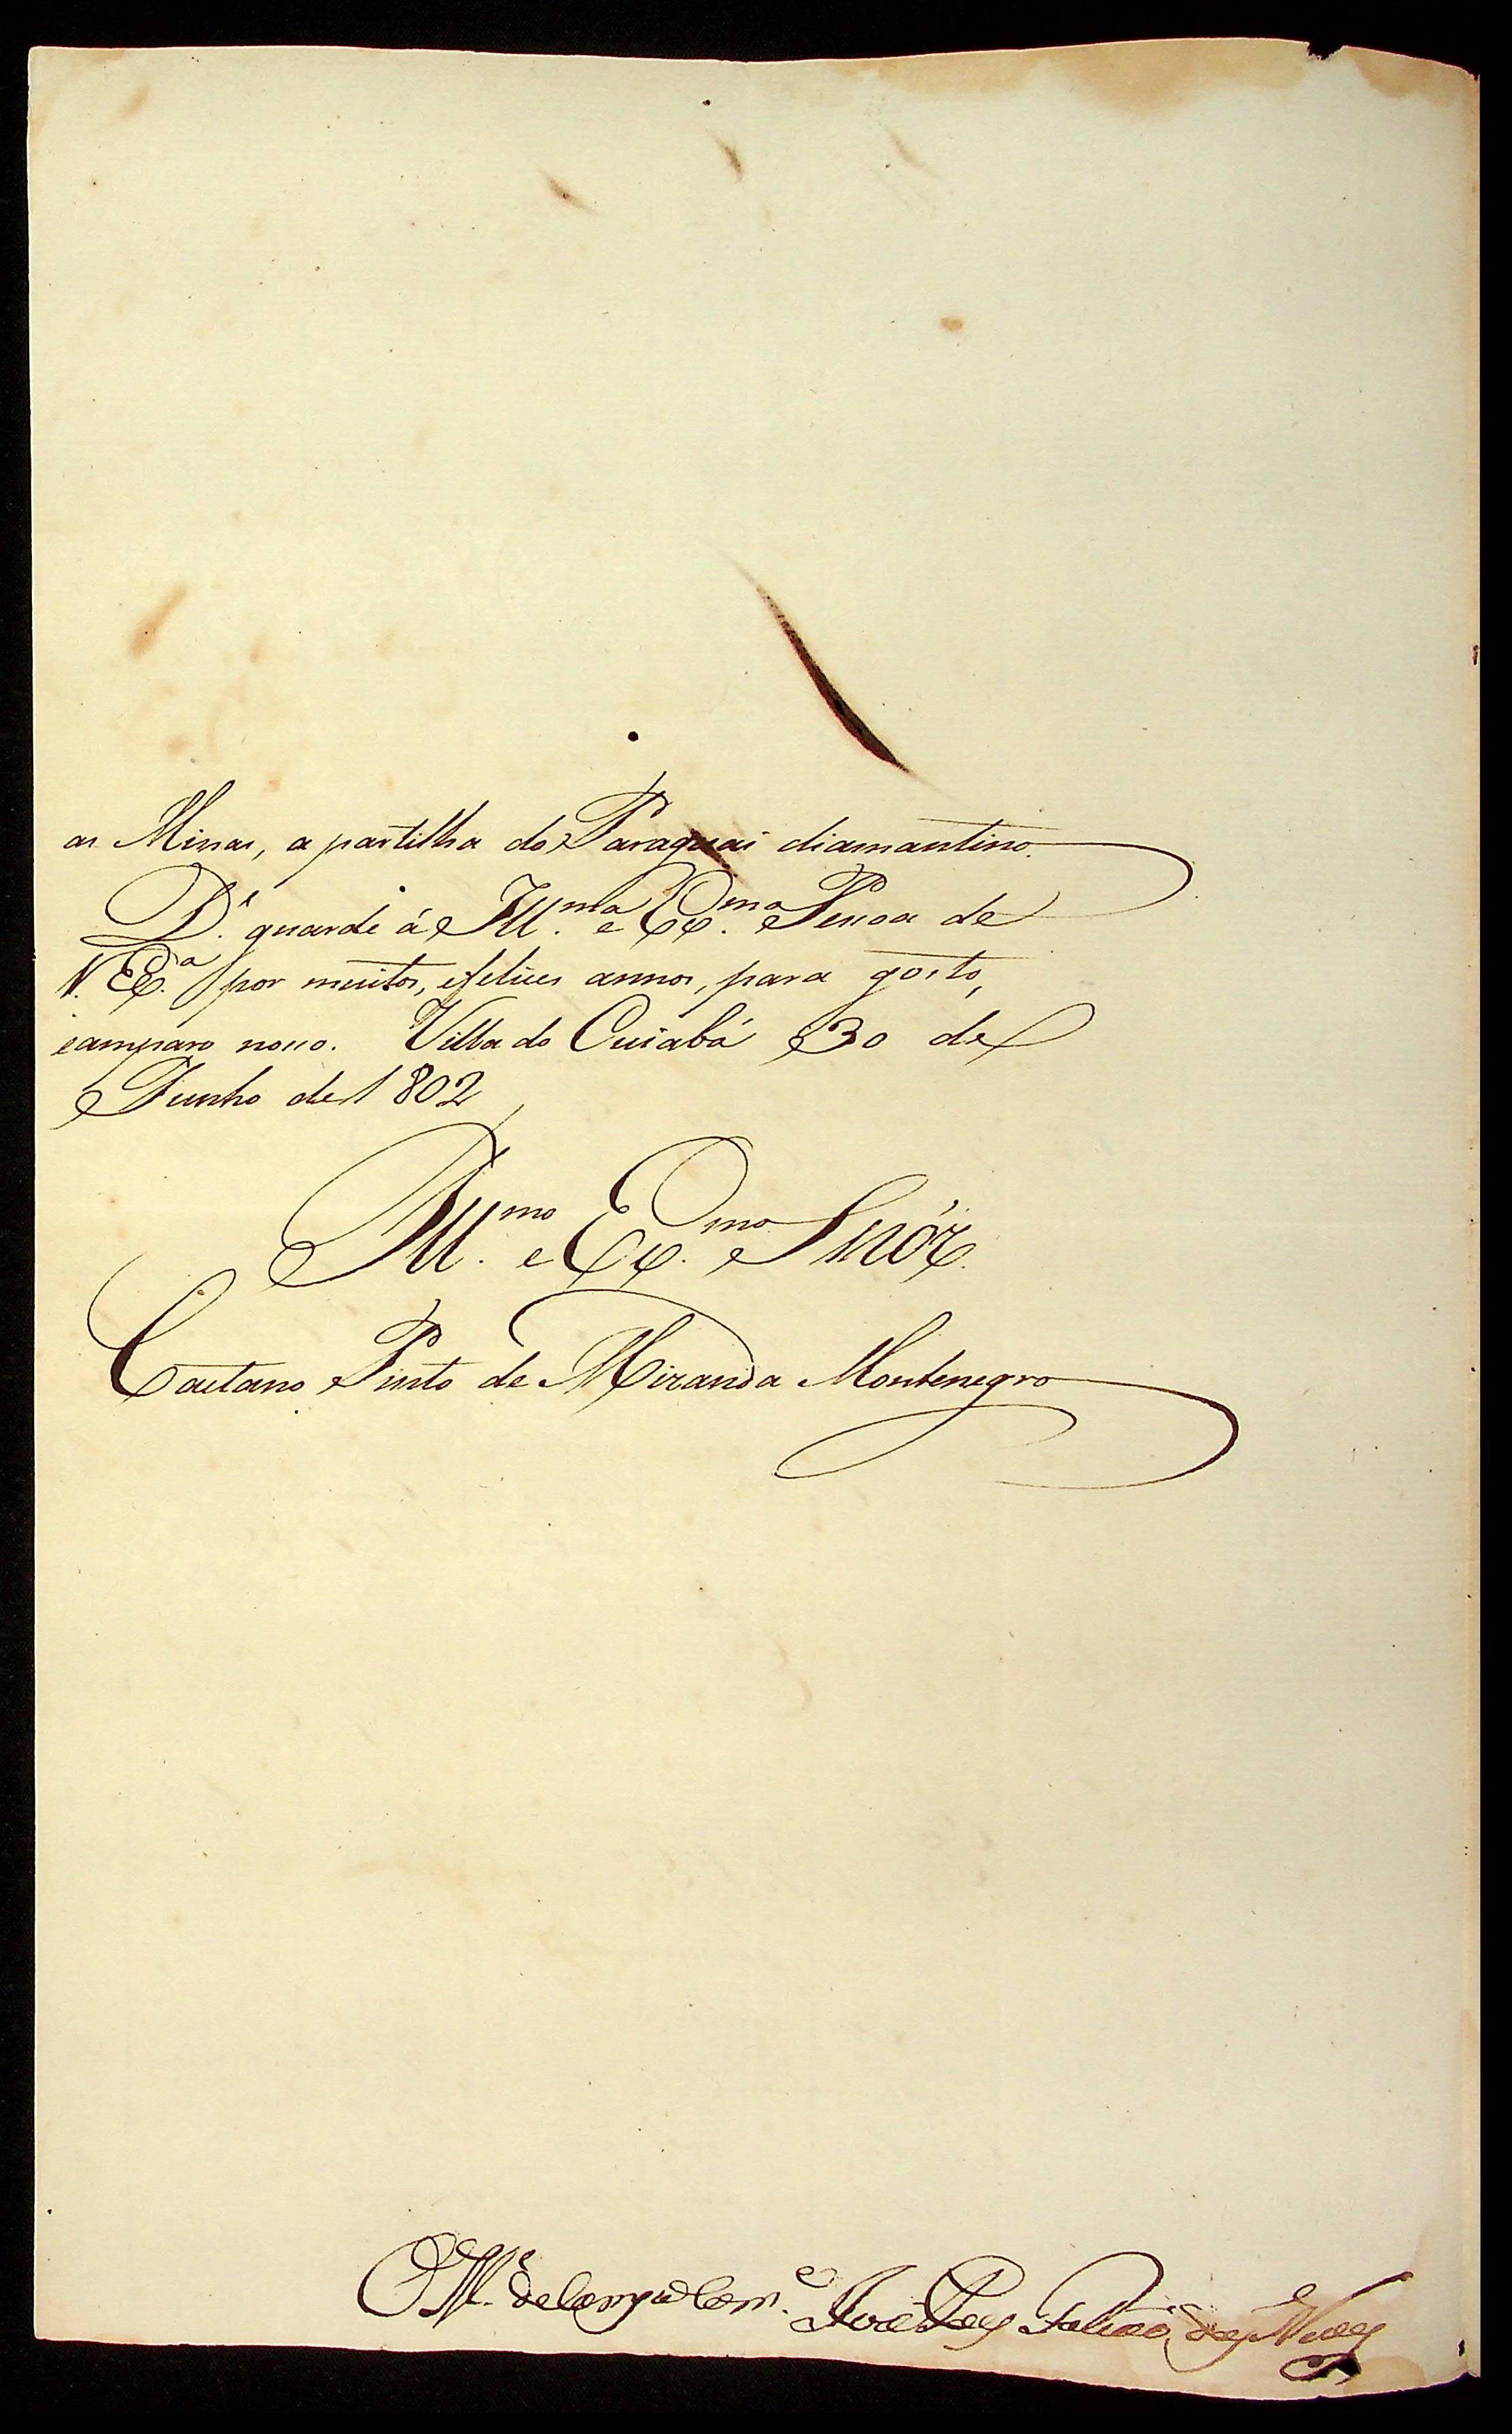 as Minas, a partilha do Paraguai diamantino.
D.ˢ guarde á Ill.ᵐᵃ e Ex.ᵐᵃ Pessoa de
V. Ex.ᵃ por muitos, e felices annos, para gosto,
e amparo nosso. Villa do Cuiabá 30 de
Junho de 1802
Ill.ᵐᵒ e Ex.ᵐᵒ Snór.
Caetano Pinto de Miranda Montenegro
O M.ᵉ de Campo Com.ᵉ José Paes Falcaõ das Neves